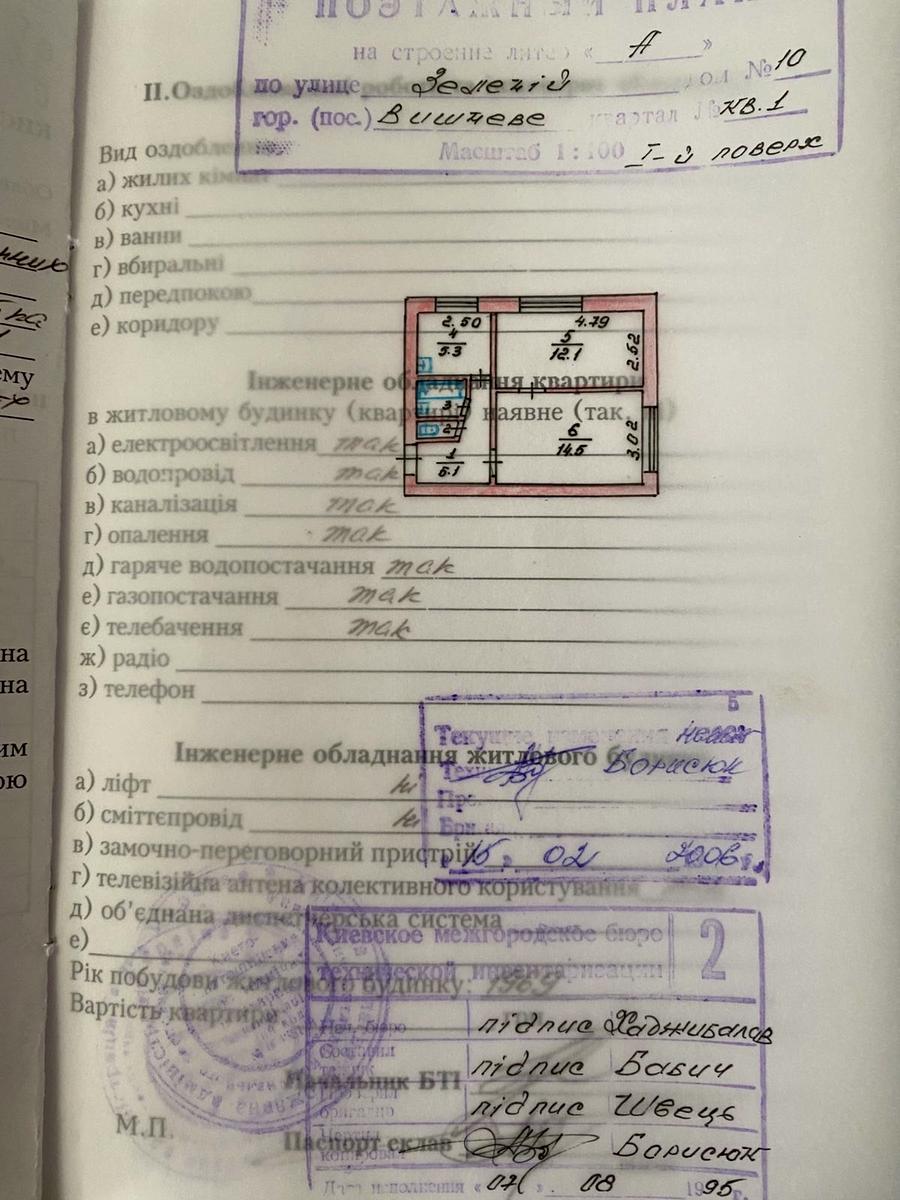 на строение литер « А »
по улице Зеленій дом № 10
гор. (пос.) Вишневе квартал № кв. 1
Масштаб 1:100 І-й поверх
Вид оздоблення
а) жилих кімнат
б) кухні
в) ванни
г) вбиральні
д) передпокою
е) коридору
2.50 4.79
4 5
5.3 12.1
2.52
3
2
6
14.5
3.02
1
5.1
Інженерне обладнання квартири
в житловому будинку (квартирі) наявне (так,
а) електроосвітлення так
б) водопровід так
в) каналізація так
г) опалення так
д) гаряче водопостачання так
е) газопостачання так
є) телебачення так
ж) радіо
з) телефон
Б
Текущие изменения
Борисюк
« 15 » 02 2006 г.
Інженерне обладнання житлового
а) ліфт ні
б) сміттєпровід ні
в) замочно-переговорний пристрій
г) телевізійна антена колективного користування
д) об’єднана диспетчерська система
е)
Киевское межгородское бюро
технической инвентаризации
2
Рік побудови житлового будинку: 1969
Вартість квартири
Нач. бюро підпис Хаджибалав
Составил техник підпис Бабич
Начальник БТІ
бригадир підпис Швець
М.П.
Паспорт склав
копировал Борисюк
Дата исполнения « 07 » 08 1995